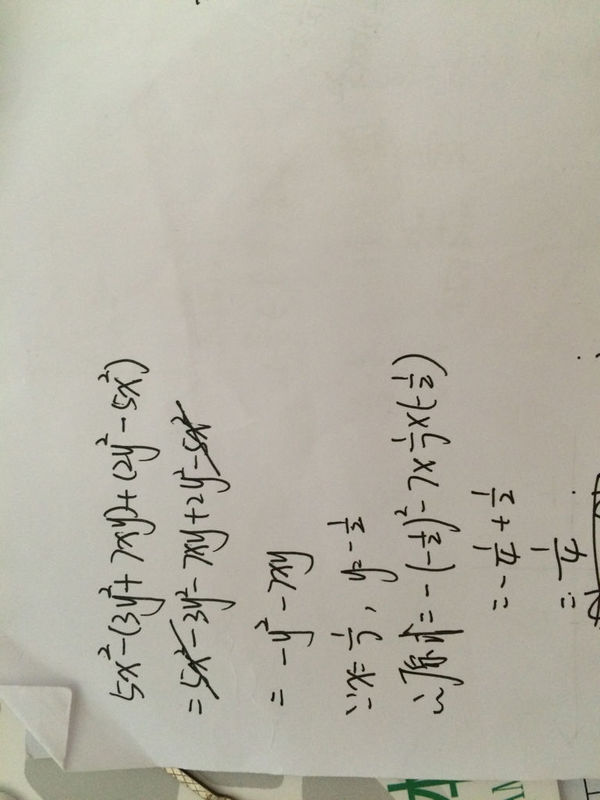 5x²-(3y²+7xy)+(2y²-5x²)
=5x²-3y²-7xy+2y²-5x²
=-y²-7xy
∵x=1/7, y=-1/2
∴原式=-(-1/2)²-7×1/7×(-1/2)
=-1/4+1/2
=1/4